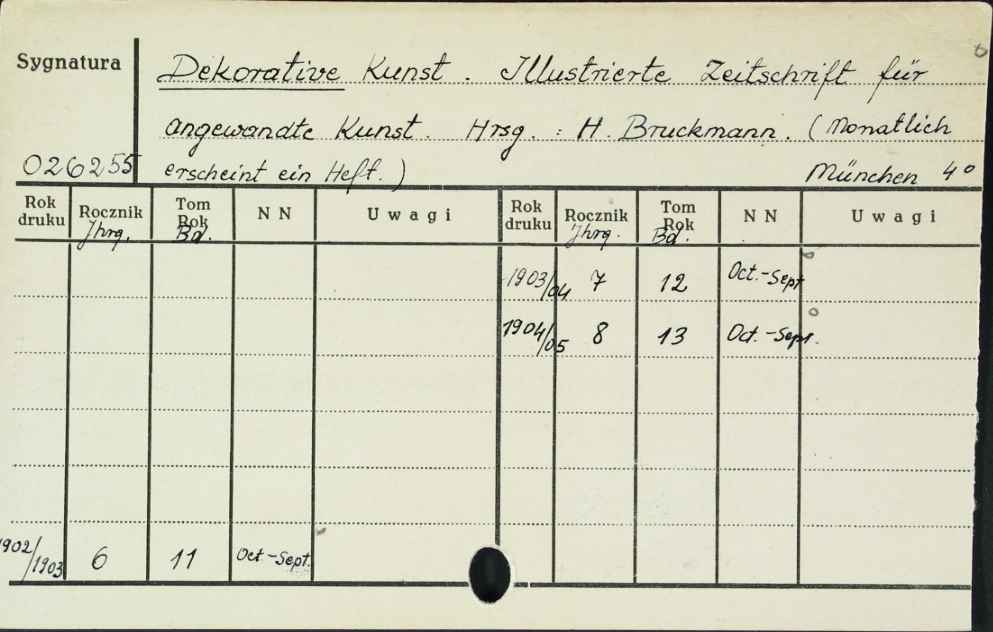 Sygnatura
Dekorative Kunst. Illustrierte Zeitschrift für
angewandte Kunst. Hrsg. : H. Bruckmann. (Monatlich
026255 erscheint ein Heft.) München 4°
Rok druku Rocznik Jhrg. Tom Rok Bd. NN Uwagi Rok druku Rocznik Jhrg. Tom Rok Bd. NN Uwagi
1903/04 7 12 Oct.-Sept
1904/05 8 13 Oct.-Sept.
1902/1903 6 11 Oct-Sept.